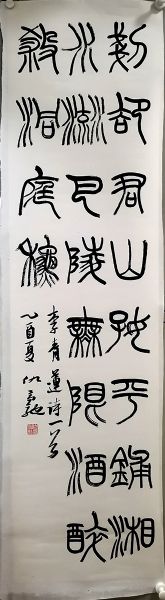 剗卻君山好平鋪湘
水流巴陵無限酒醉
殺洞庭秋
李青蓮詩一首
乙酉夏